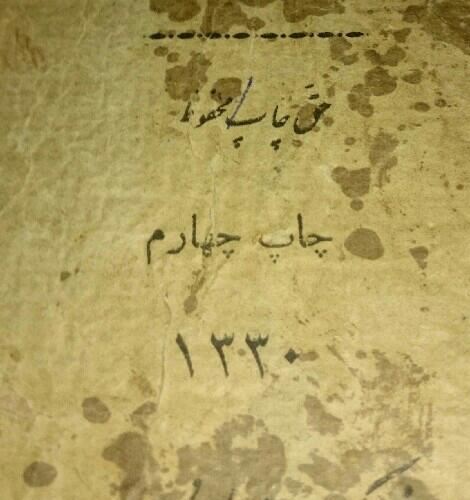 حق چاپ محفوظ
چاپ چهارم
۱۳۳۰